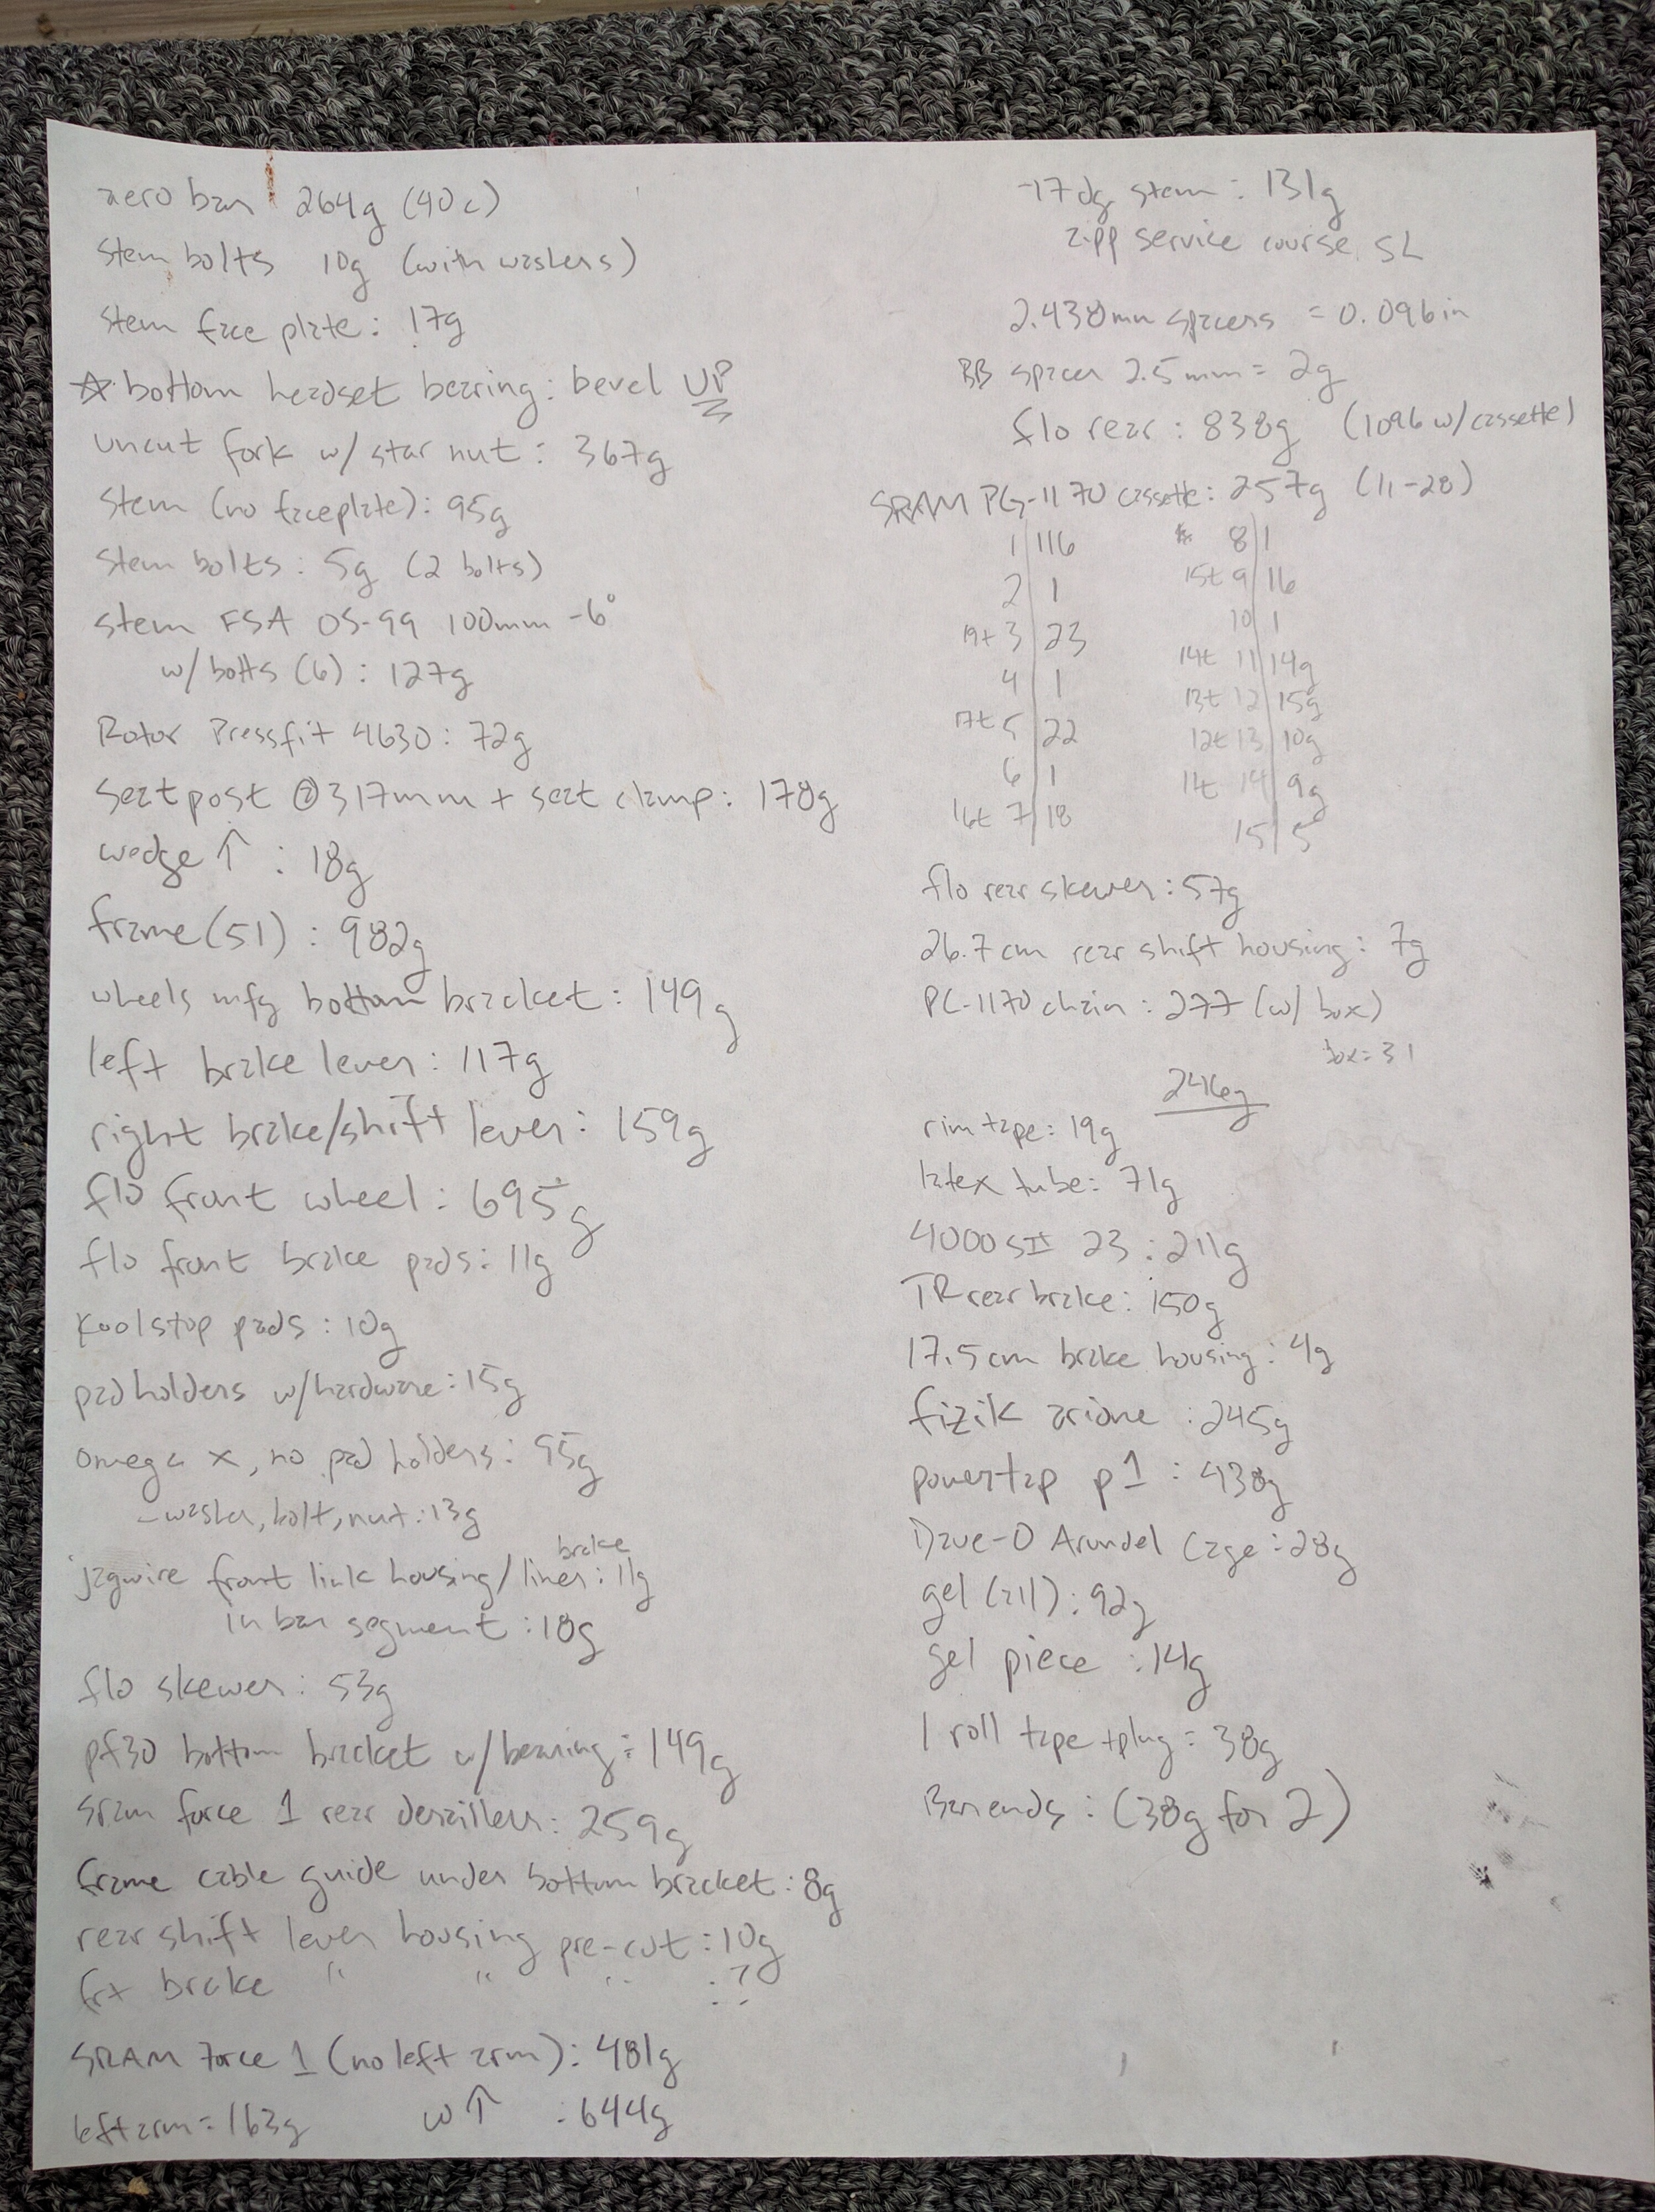 aero bar 264g (40c)
stem bolts 10g (with washers)
stem face plate: 17g
☆ bottom headset bearing: bevel UP
uncut fork w/ star nut: 367g
stem (no faceplate): 95g
stem bolts: 5g (2 bolts)
stem FSA OS-99 100mm -6°
w/ bolts (6): 127g
Rotor Pressfit 4630: 72g
seatpost @317mm + seat clamp: 178g
wedge ↑ : 18g
frame (51) : 982g
wheels mfg bottom bracket: 149g
left brake lever: 117g
right brake/shift lever: 159g
flo front wheel: 695g
flo front brake pads: 11g
Koolstop pads: 10g
padholders w/hardware: 15g
omega x, no pad holders: 95g
- washer, bolt, nut: 13g
brake
jagwire front link housing/liner: 11g
in bar segment: 18g
flo skewer: 53g
pf30 bottom bracket w/bearing: 149g
sram force 1 rear derailleur: 259g
frame cable guide under bottom bracket: 8g
rear shift lever housing pre-cut: 10g
frt brake " " " : ?
SRAM Force 1 (no left arm): 481g
left arm = 163g w ↑ : 644g
-17dg stem: 131g
zipp service course SL
2.438mm spacers = 0.096in
BB spacer 2.5mm = 2g
flo rear: 838g (1096 w/cassette)
SRAM PG-1170 cassette: 257g (11-28)
1 | 116
2 | 1
19t 3 | 23
4 | 1
17t 5 | 22
6 | 1
16t 7 | 18
8 | 1
15t 9 | 16
10 | 1
14t 11 | 14g
13t 12 | 15g
12t 13 | 10g
11t 14 | 9g
15 | 5
flo rear skewer: 57g
26.7cm rear shift housing: 7g
PC-1170 chain: 277 (w/ box)
box = 31
246g
rim tape: 19g
latex tube: 71g
4000sII 23: 211g
TR rear brake: 150g
17.5cm brake housing: 4g
fizik arione: 245g
powertap p1: 438g
Dave-O Arundel Cage: 28g
gel (all): 92g
gel piece: 14g
1 roll tape + plug = 38g
Bar ends: (38g for 2)